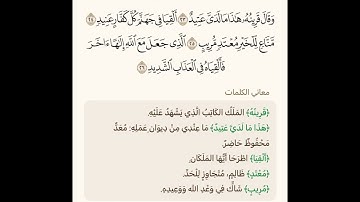 وَقَالَ قَرِينُهُۥ هَٰذَا مَا لَدَىَّ عَتِيدٌ ٢٣ أَلْقِيَا فِى جَهَنَّمَ كُلَّ كَفَّارٍ عَنِيدٍ ٢٤
مَّنَّاعٍ لِّلْخَيْرِ مُعْتَدٍ مُّرِيبٍ ٢٥ ٱلَّذِى جَعَلَ مَعَ ٱللَّهِ إِلَٰهًا ءَاخَرَ
فَأَلْقِيَاهُ فِى ٱلْعَذَابِ ٱلشَّدِيدِ ٢٦
معاني الكلمات
﴿قَرِينُهُ﴾ المَلَكُ الكَاتِبُ الَّذِي يَشْهَدُ عَلَيْهِ.
﴿هَذَا مَا لَدَيَّ عَتِيدٌ﴾ مَا عِنْدِي مِنْ دِيوَانِ عَمَلِهِ: مُعَدٌّ
مَحْفُوظٌ حَاضِرٌ.
﴿أَلْقِيَا﴾ اطْرَحَا أَيُّهَا المَلَكَانِ.
﴿مُعْتَدٍ﴾ ظَالِمٍ، مُتَجَاوِزٍ لِلْحَدِّ.
﴿مُرِيبٍ﴾ شَاكٍّ فِي وَعْدِ اللهِ وَوَعِيدِهِ.